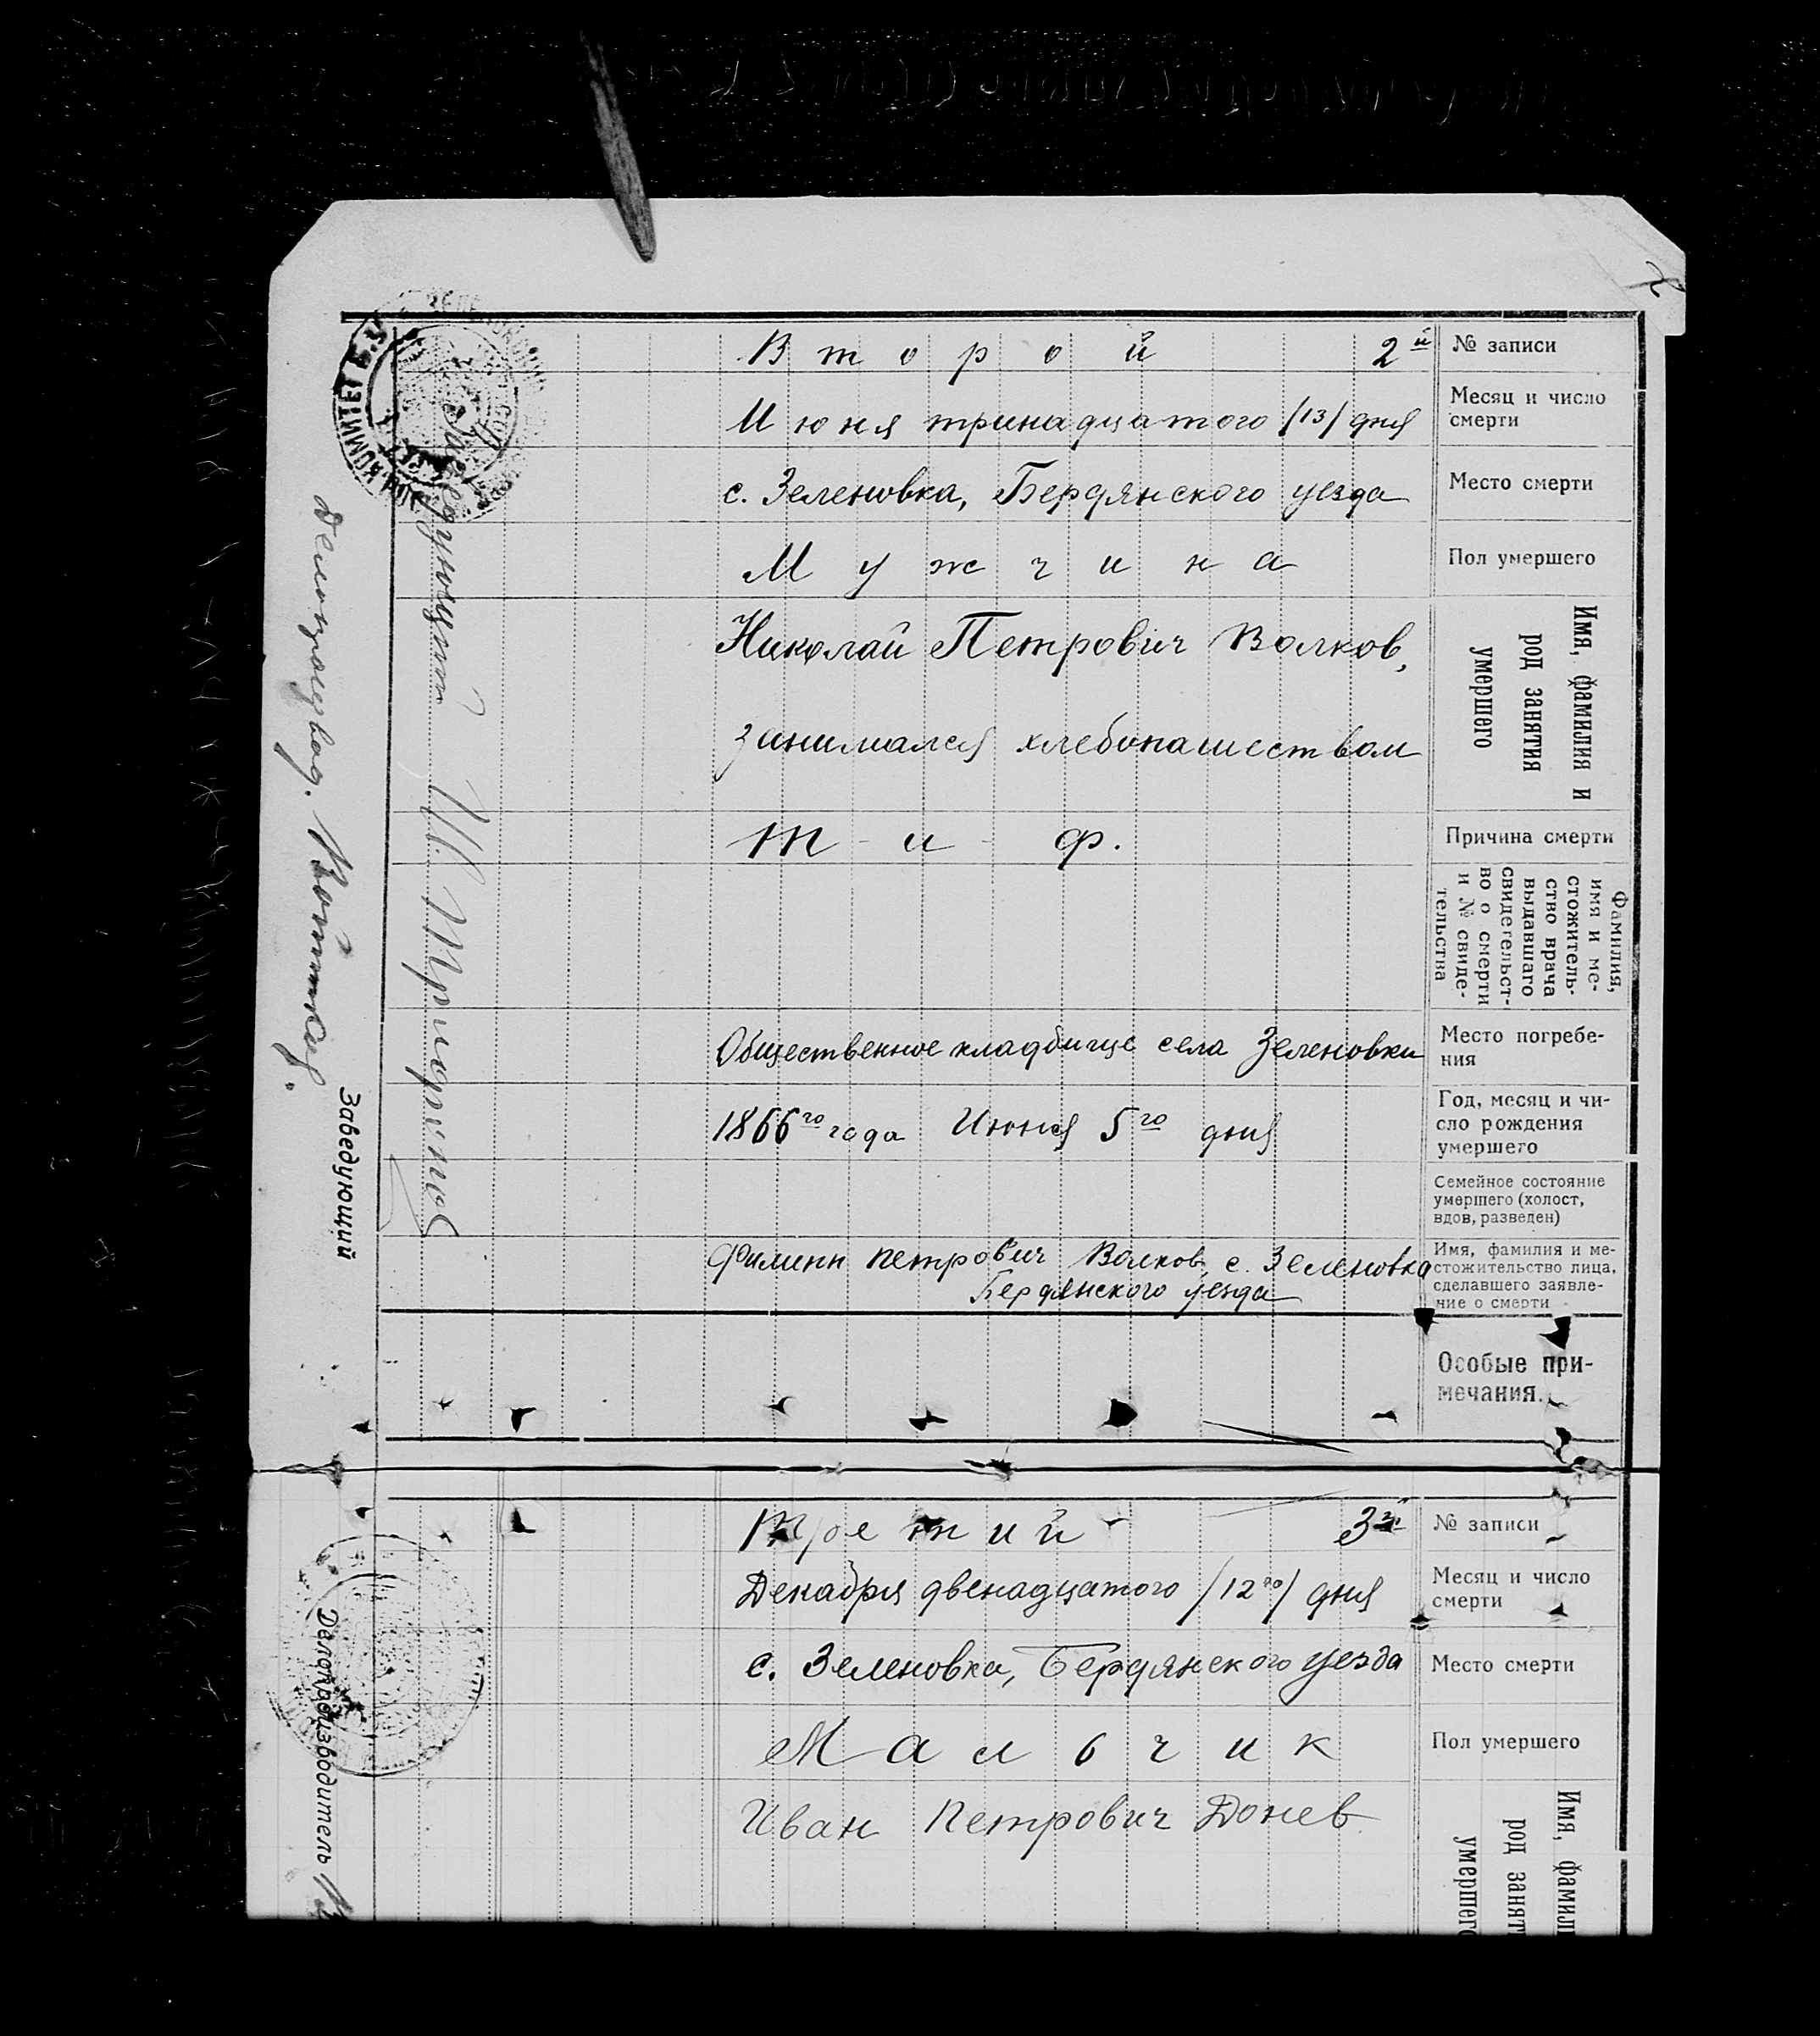 Второй 2й № записи
Июня тринадцатого /13/ дня Месяц и число
смерти
с. Зеленовка, Бердянского уезда Место смерти
Мужчина Пол умершего
Николай Петрович Волков,
занимался хлебопашеством
Имя, фамилия и
род занятия
умершего
Тиф. Причина смерти
Фамилия,
имя и ме-
стожитель-
ство врача
выдавшего
свидетельст-
во о смерти
и № свиде-
тельства
Общественное кладбище села Зеленовки Место погребе-
ния
1866го года Июня 5го дня Год, месяц и чи-
сло рождения
умершего
Семейное состояние
умершего (холост,
вдов, разведен)
Филипп Петрович Волков, с. Зеленовка
Бердянского уезда
Имя, фамилия и ме-
стожительство лица,
сделавшего заявле-
ние о смерти
Особые при-
мечания.
Заведующий
Заведующий
Делопроизвод.
КОМИТЕТ
Третий 3й № записи
Декабря двенадцатого /12го/ дня Месяц и число
смерти
с. Зеленовка, Бердянского уезда Место смерти
Мальчик Пол умершего
Иван Петрович Донев
Имя, фамил
род занят
умершего
Делопроизводитель